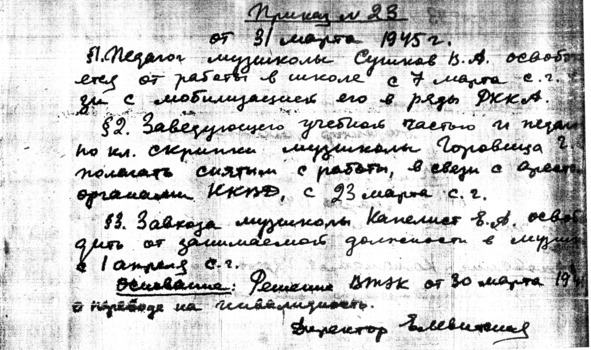 Приказ № 23
от 31 марта 1945 г.
§1. Педагог музшколы Сушков В.А. освобо
ется от работы в школе с 7 марта с.г.
зи с мобилизацией его в ряды РККА.
§2. Заведующего учебной частью и педаг
по кл. скрипки музшколы Горовица Г.
полагать снятым с работы, в связи с арест
органами НКВД, с 23 марта с.г.
§3. Завхоза музшколы Капелист Е.А. освоб
дить от занимаемой должности в музш
с 1 апреля с.г.
Основание: Решение ВТЭК от 30 марта 194
о переводе на инвалидность.
Директор